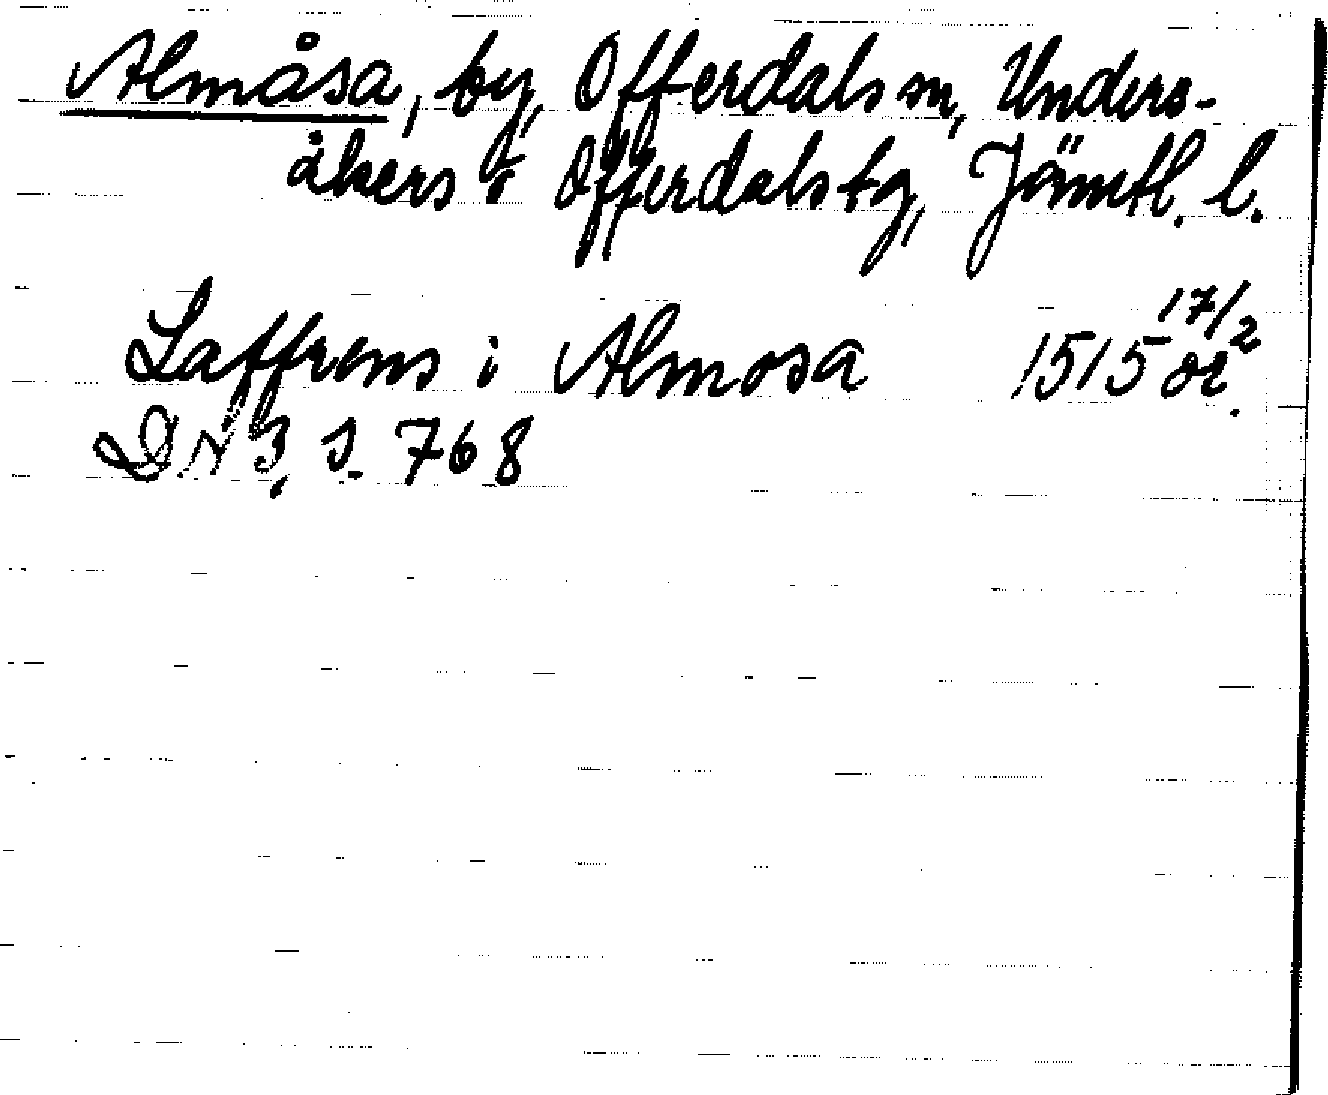 Almåsa, by, Offerdals sn, Unders-
åkers o Offerdals tg, Jämtl. l.
Laffrens i Almosa 1515 17/2 or.
DN 3, s. 768